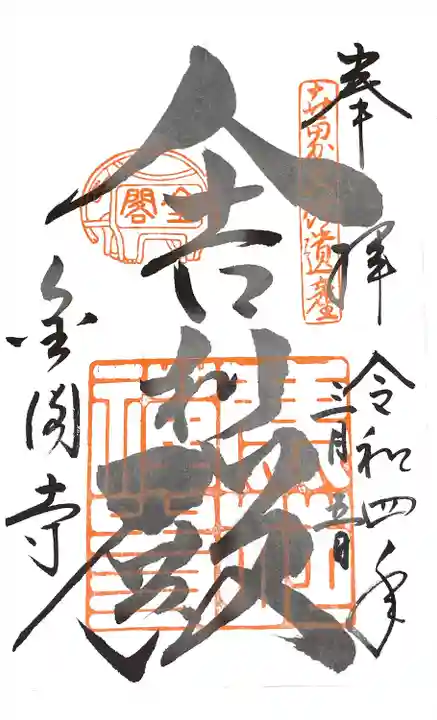 奉拝
世界文化遺産
令和四年
三月五日
舎利殿
金閣
金閣寺